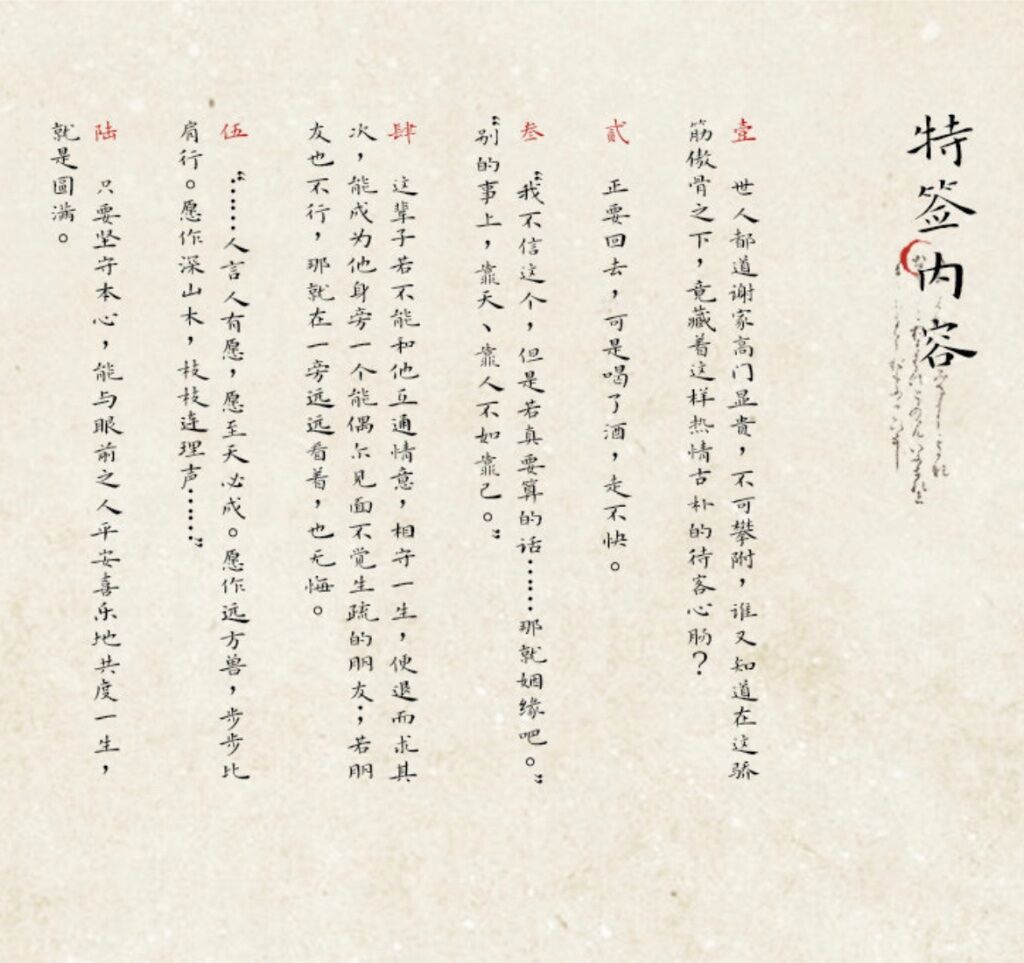 特签内容
壹 世人都道谢家高门显贵，不可攀附，谁又知道在这骄
筋傲骨之下，竟藏着这样热情古朴的待客心肠？
贰 正要回去，可是喝了酒，走不快。
叁 “我不信这个，但是若真要算的话……那就姻缘吧。”
“别的事上，靠天、靠人不如靠己。”
肆 这辈子若不能和他互通情意，相守一生，便退而求其
次，能成为他身旁一个能偶尔见面不觉生疏的朋友；若朋
友也不行，那就在一旁远远看着，也无悔。
伍 “……人言人有愿，愿至天必成。愿作远方兽，步步比
肩行。愿作深山木，枝枝连理声……”
陆 只要坚守本心，能与眼前之人平安喜乐地共度一生，
就是圆满。